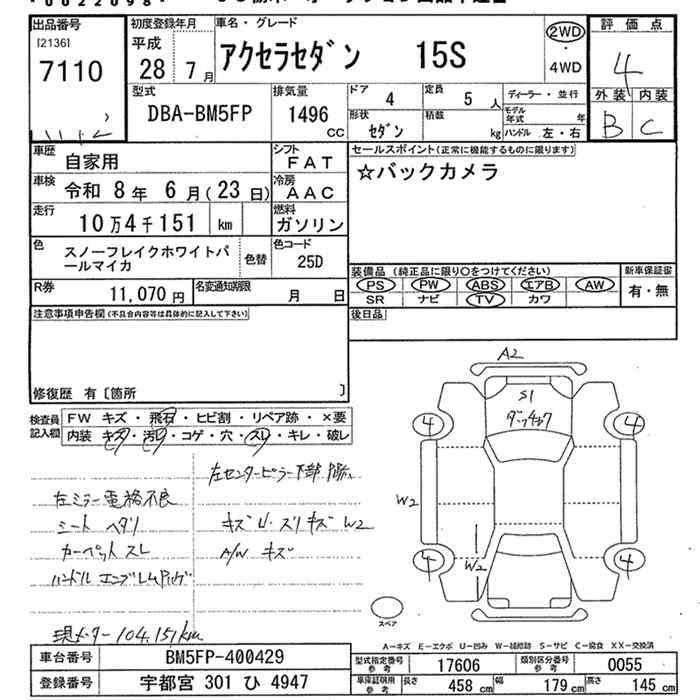 出品番号
[2136]
7110
初度登録年月
平成
28年 7月
車名・グレード
アクセラセダン 15S
2WD
・
4WD
評価点
4
外装 内装
B C
型式
DBA-BM5FP
排気量
1496
CC
ドア
4
定員
5 人
形状
セダン
積載
kg
ディーラー・並行
モデル年式 年
ハンドル 左・右
車歴
自家用
シフト
FAT
車検
令和 8年 6月(23日)
冷房
AAC
走行
10万4千151 km
燃料
ガソリン
色
スノーフレイクホワイトパ
ールマイカ
色替
色コード
25D
R券
11,070円
名変通知期限
月 日
セールスポイント(正常に機能するものに限ります)
☆バックカメラ
装備品(純正品に限り○をつけてください)
PS PW ABS エアB AW
SR ナビ TV カワ
新車保証書
有・無
後日品
注意事項申告欄(不具合内容等は具体的に記入して下さい)
修復歴 有〔箇所 〕
検査員
記入欄
FW キズ・飛石・ヒビ割・リペア跡・×要
内装 キズ・汚レ・コゲ・穴・スレ・キレ・破レ
左センターピラー下部
左ミラー電格不良
シート ヘタリ
キズ U・スリキズ W2
カーペット スレ
A/W キズ
ハンドル エンブレム
現メーター 104,151km
A2
S1
4
4
W2
4
4
W2
スペア
A-キズ E-エクボ U-凹み W-補修跡 S-サビ C-腐食 XX-交換済
車台番号
BM5FP-400429
型式指定番号
参考
17606
類別区分番号
参考
0055
登録番号
宇都宮 301 ひ 4947
車庫証明用
参考
長さ 458 cm
幅 179 cm
高さ 145 cm